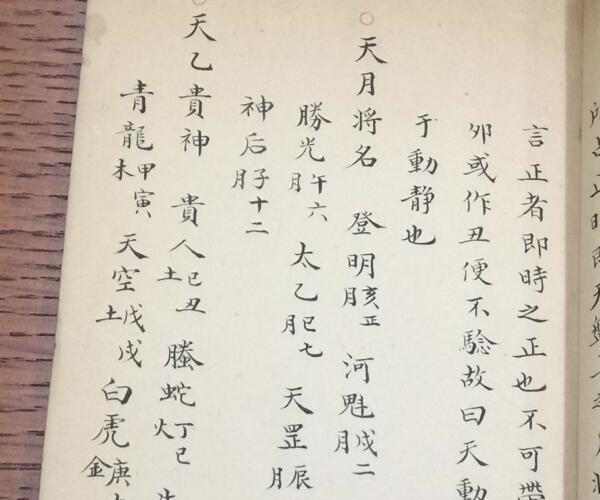 言正者即時之正也不可帶
夘或作丑便不驗故曰天動
于動靜也
天月将名 登明亥正月 河魁戌二月
勝光午六月 太乙巳七月 天罡辰月
神后子十二月
天乙貴神 貴人己丑土 螣蛇丁巳火
青龍甲寅木 天空戊戌土 白虎庚金